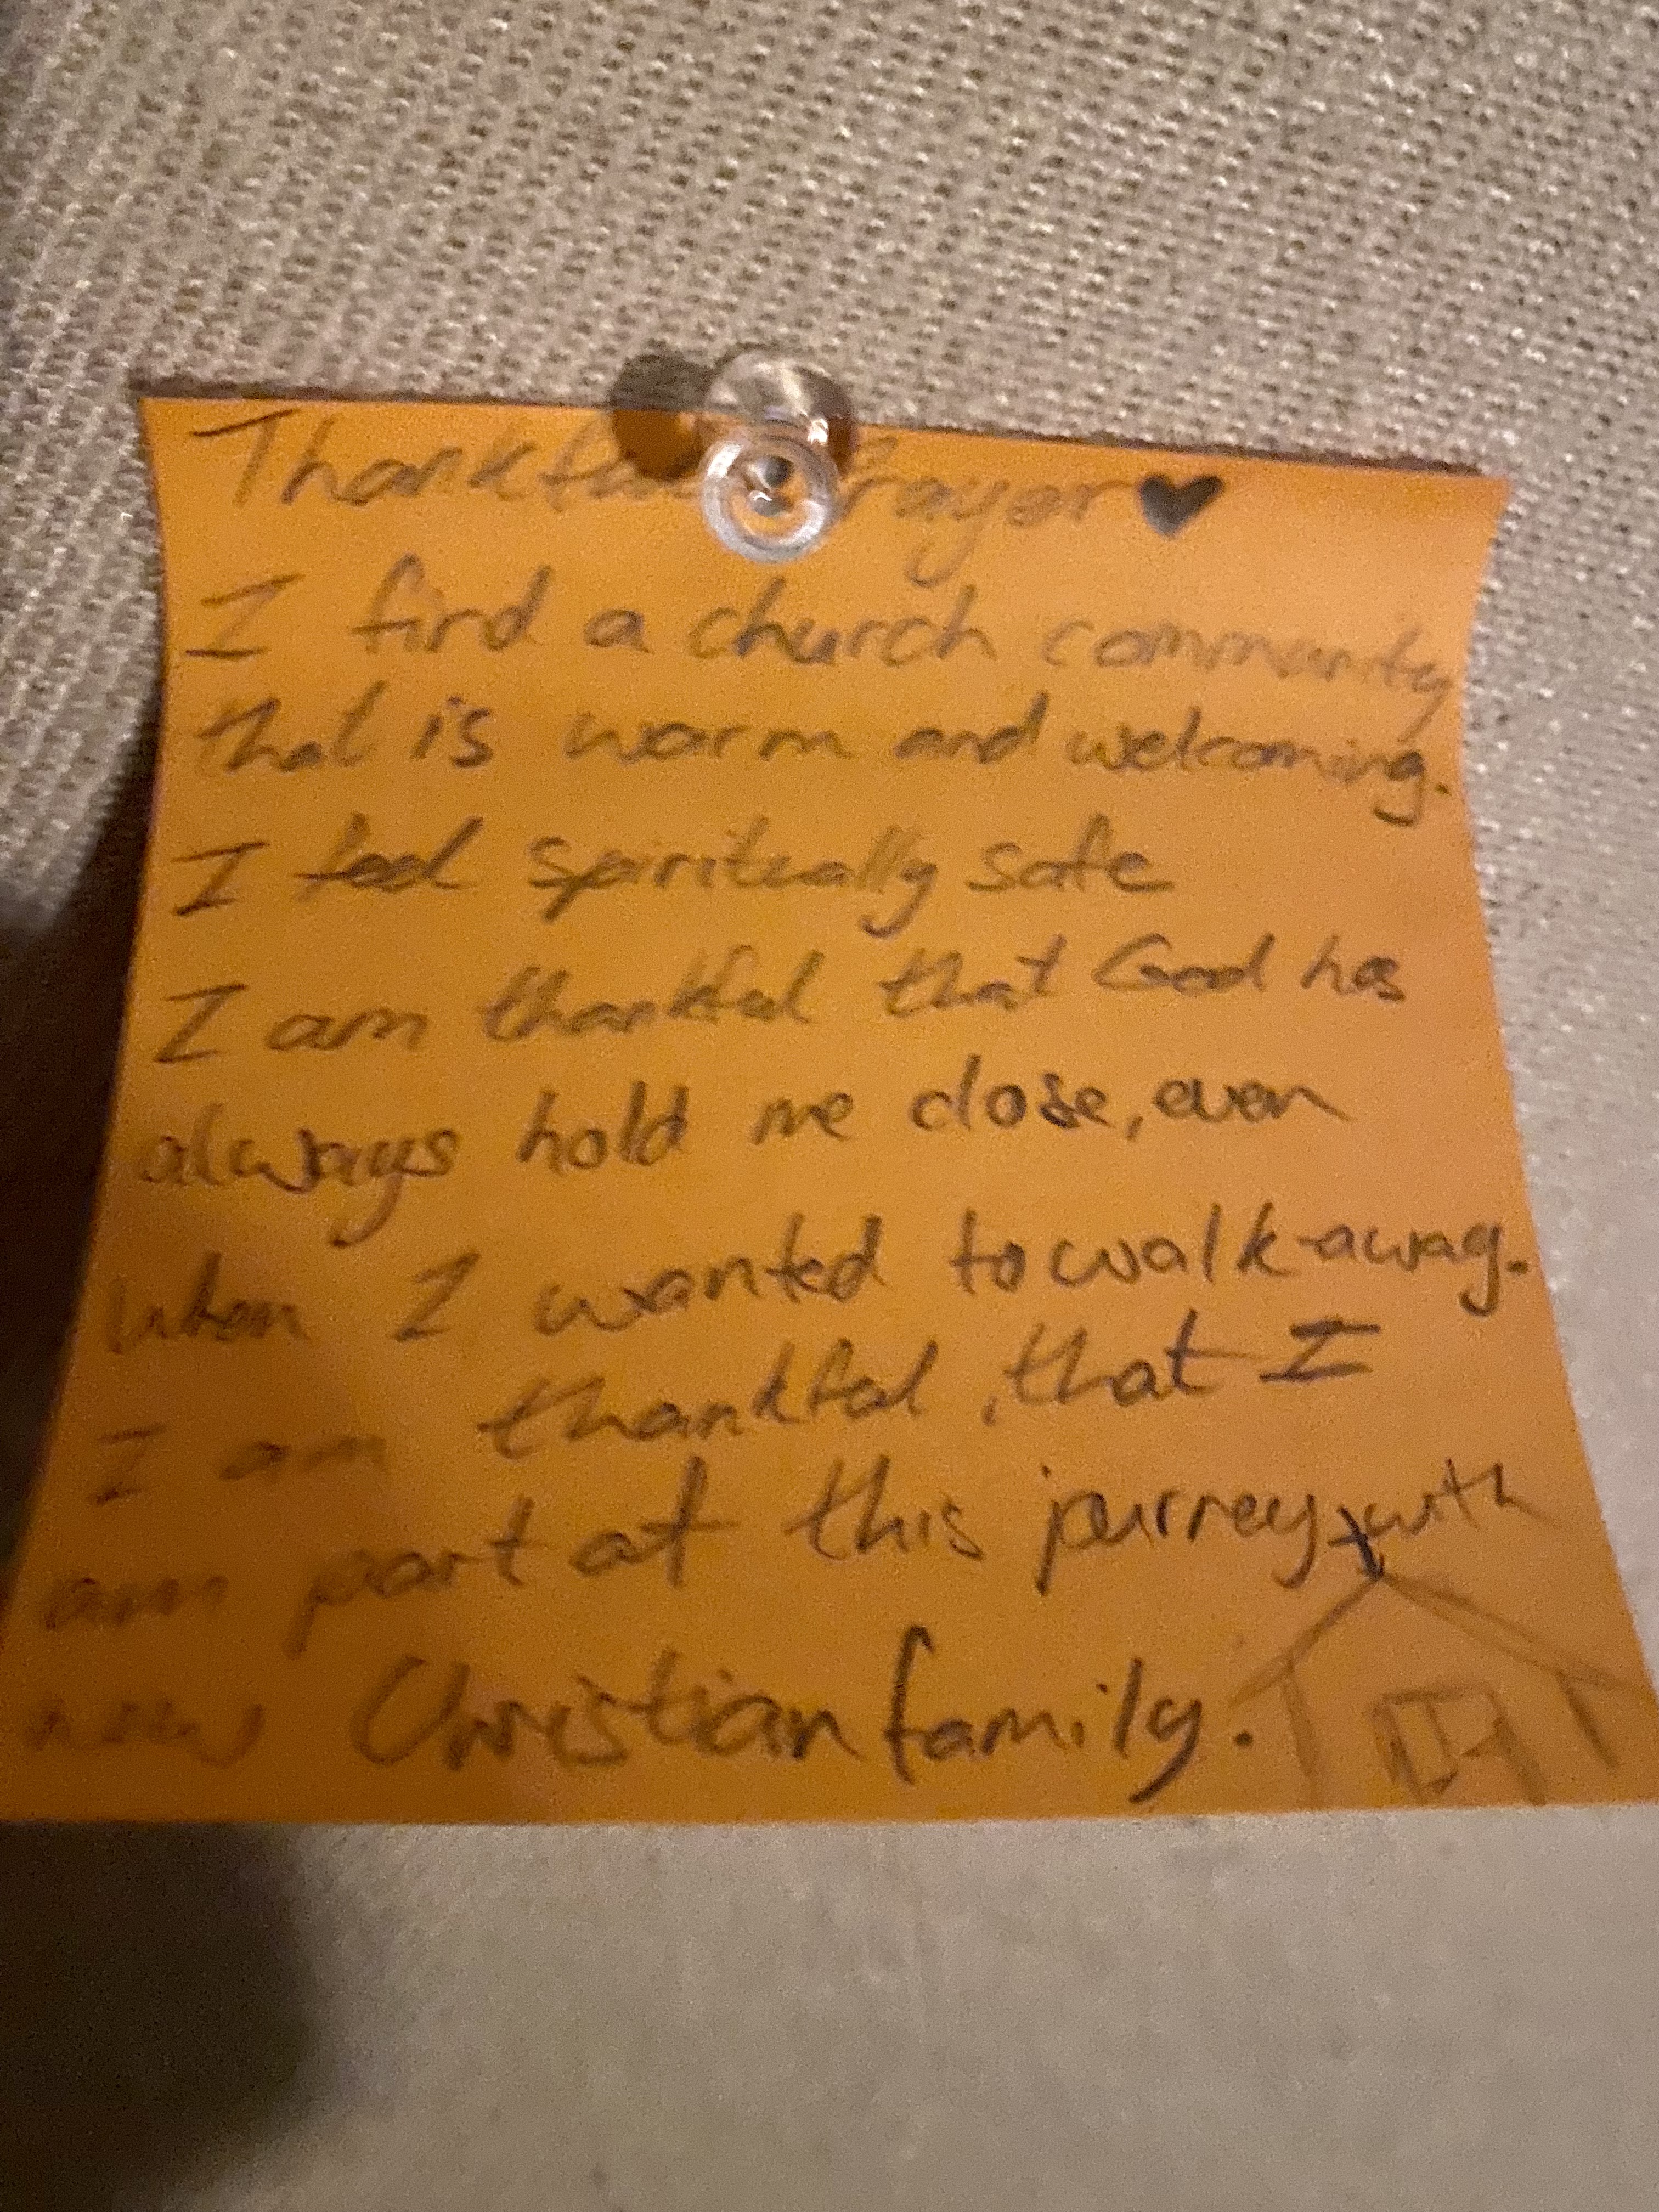 Thankful Prayer ♥
I find a church community
that is warm and welcoming.
I feel spiritually safe
I am thankful that God has
always hold me close, even
when I wanted to walk away.
I am thankful, that I
am part at this jurney, with
new Christian family.